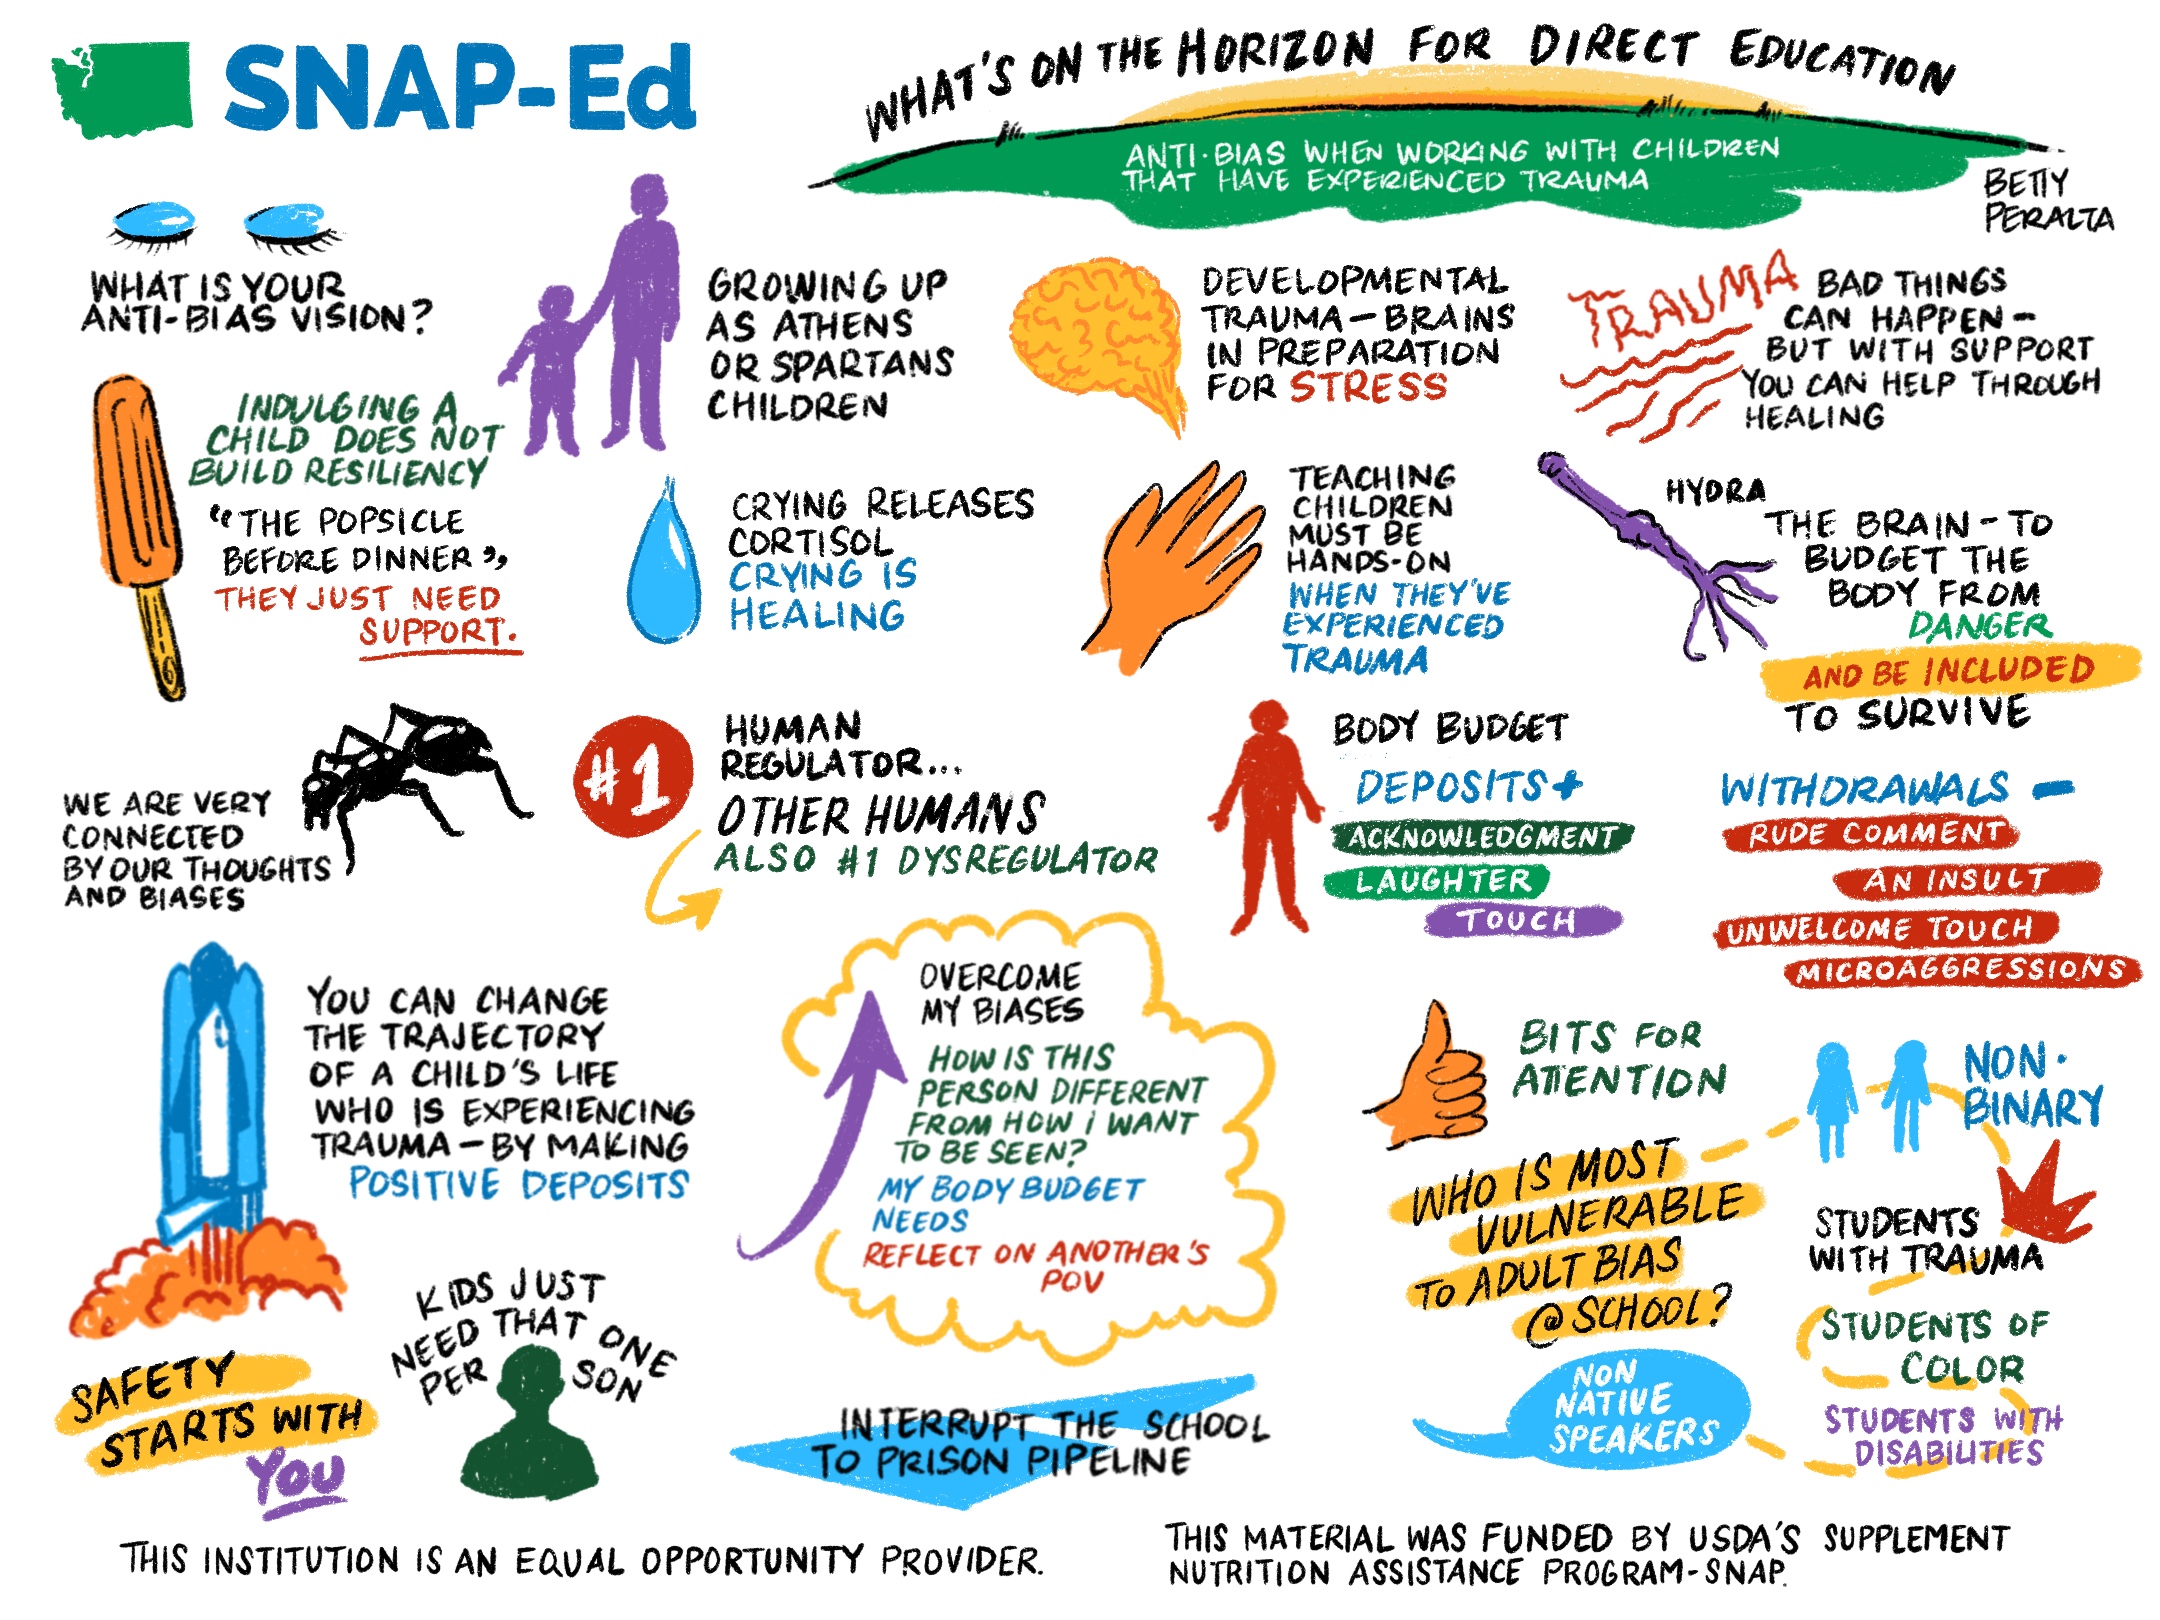 SNAP-Ed
WHAT'S ON THE HORIZON FOR DIRECT EDUCATION
ANTI-BIAS WHEN WORKING WITH CHILDREN
THAT HAVE EXPERIENCED TRAUMA
BETTY
PERALTA
WHAT IS YOUR
ANTI-BIAS VISION?
GROWING UP
AS ATHENS
OR SPARTANS
CHILDREN
DEVELOPMENTAL
TRAUMA - BRAINS
IN PREPARATION
FOR STRESS
TRAUMA
BAD THINGS
CAN HAPPEN -
BUT WITH SUPPORT
YOU CAN HELP THROUGH
HEALING
INDULGING A
CHILD DOES NOT
BUILD RESILIENCY
"THE POPSICLE
BEFORE DINNER",
THEY JUST NEED
SUPPORT.
CRYING RELEASES
CORTISOL
CRYING IS
HEALING
TEACHING
CHILDREN
MUST BE
HANDS-ON
WHEN THEY'VE
EXPERIENCED
TRAUMA
HYDRA
THE BRAIN - TO
BUDGET THE
BODY FROM
DANGER
AND BE INCLUDED
TO SURVIVE
WE ARE VERY
CONNECTED
BY OUR THOUGHTS
AND BIASES
#1
HUMAN
REGULATOR...
OTHER HUMANS
ALSO #1 DYSREGULATOR
BODY BUDGET
DEPOSITS +
ACKNOWLEDGMENT
LAUGHTER
TOUCH
WITHDRAWALS -
RUDE COMMENT
AN INSULT
UNWELCOME TOUCH
MICROAGGRESSIONS
YOU CAN CHANGE
THE TRAJECTORY
OF A CHILD'S LIFE
WHO IS EXPERIENCING
TRAUMA - BY MAKING
POSITIVE DEPOSITS
OVERCOME
MY BIASES
HOW IS THIS
PERSON DIFFERENT
FROM HOW i WANT
TO BE SEEN?
MY BODY BUDGET
NEEDS
REFLECT ON ANOTHER'S
POV
BITS FOR
ATTENTION
WHO IS MOST
VULNERABLE
TO ADULT BIAS
@ SCHOOL?
NON-
BINARY
STUDENTS
WITH TRAUMA
STUDENTS OF
COLOR
STUDENTS WITH
DISABILITIES
NON
NATIVE
SPEAKERS
SAFETY
STARTS WITH
YOU
KIDS JUST
NEED THAT ONE
PER SON
INTERRUPT THE SCHOOL
TO PRISON PIPELINE
THIS INSTITUTION IS AN EQUAL OPPORTUNITY PROVIDER.
THIS MATERIAL WAS FUNDED BY USDA'S SUPPLEMENT
NUTRITION ASSISTANCE PROGRAM-SNAP.